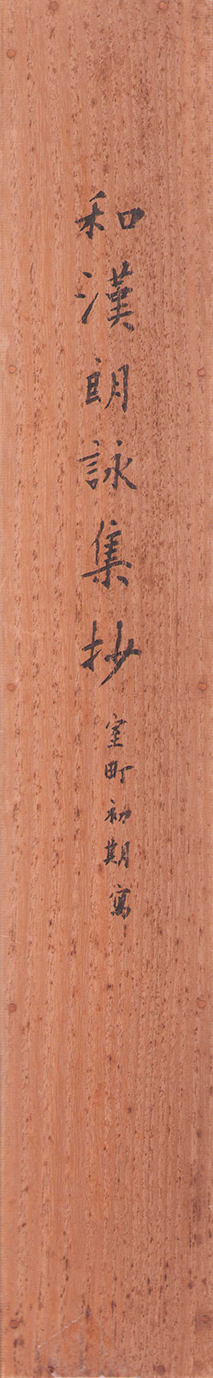 和漢朗詠集抄
室町初期寫